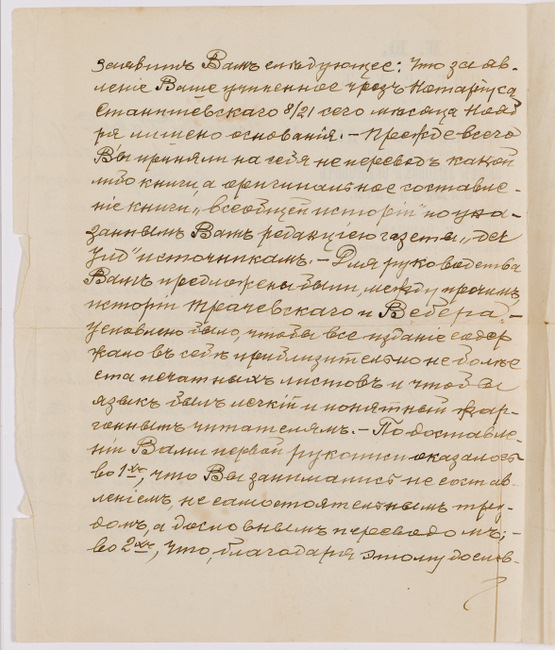 заявить Вамъ слѣдующее: Что заяв-
леніе Ваше учиненное чрезъ Нотаріуса
Станишевскаго 8/21 сего мѣсяца Нояб
ря лишено основанія. – Прежде всего
Вы приняли на себя не переводъ какой
либо книги, а оригинальное составле-
ніе книги „всеобщей исторіи" по ука-
заннымъ Вамъ редакціею газеты „Дер
Юд" источникамъ. – Для руководства
Вамъ предложены были, между прочимъ,
исторіи Трачевскаго и Вебера, –
условлено было, чтобы все изданіе содер
жало въ себѣ приблизительно не болѣе
ста печатныхъ листовъ и чтобы
языкъ былъ легкій и понятный жар-
гоннымъ читателямъ. – По доставле-
ніи Вами первой рукописи оказалось
во 1хъ, что Вы занимались не состав-
леніемъ, не самостоятельнымъ тру-
домъ, а дословнымъ переводомъ; –
во 2хъ, что, благодаря этому дослов-